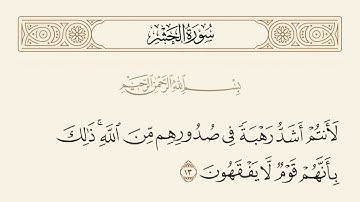 سُورَةُ الحَشْرِ
بِسْمِ اللَّهِ الرَّحْمَٰنِ الرَّحِيمِ
لَأَنتُمْ أَشَدُّ رَهْبَةً فِى صُدُورِهِم مِّنَ ٱللَّهِ ۚ ذَٰلِكَ
بِأَنَّهُمْ قَوْمٌ لَّا يَفْقَهُونَ ١٣